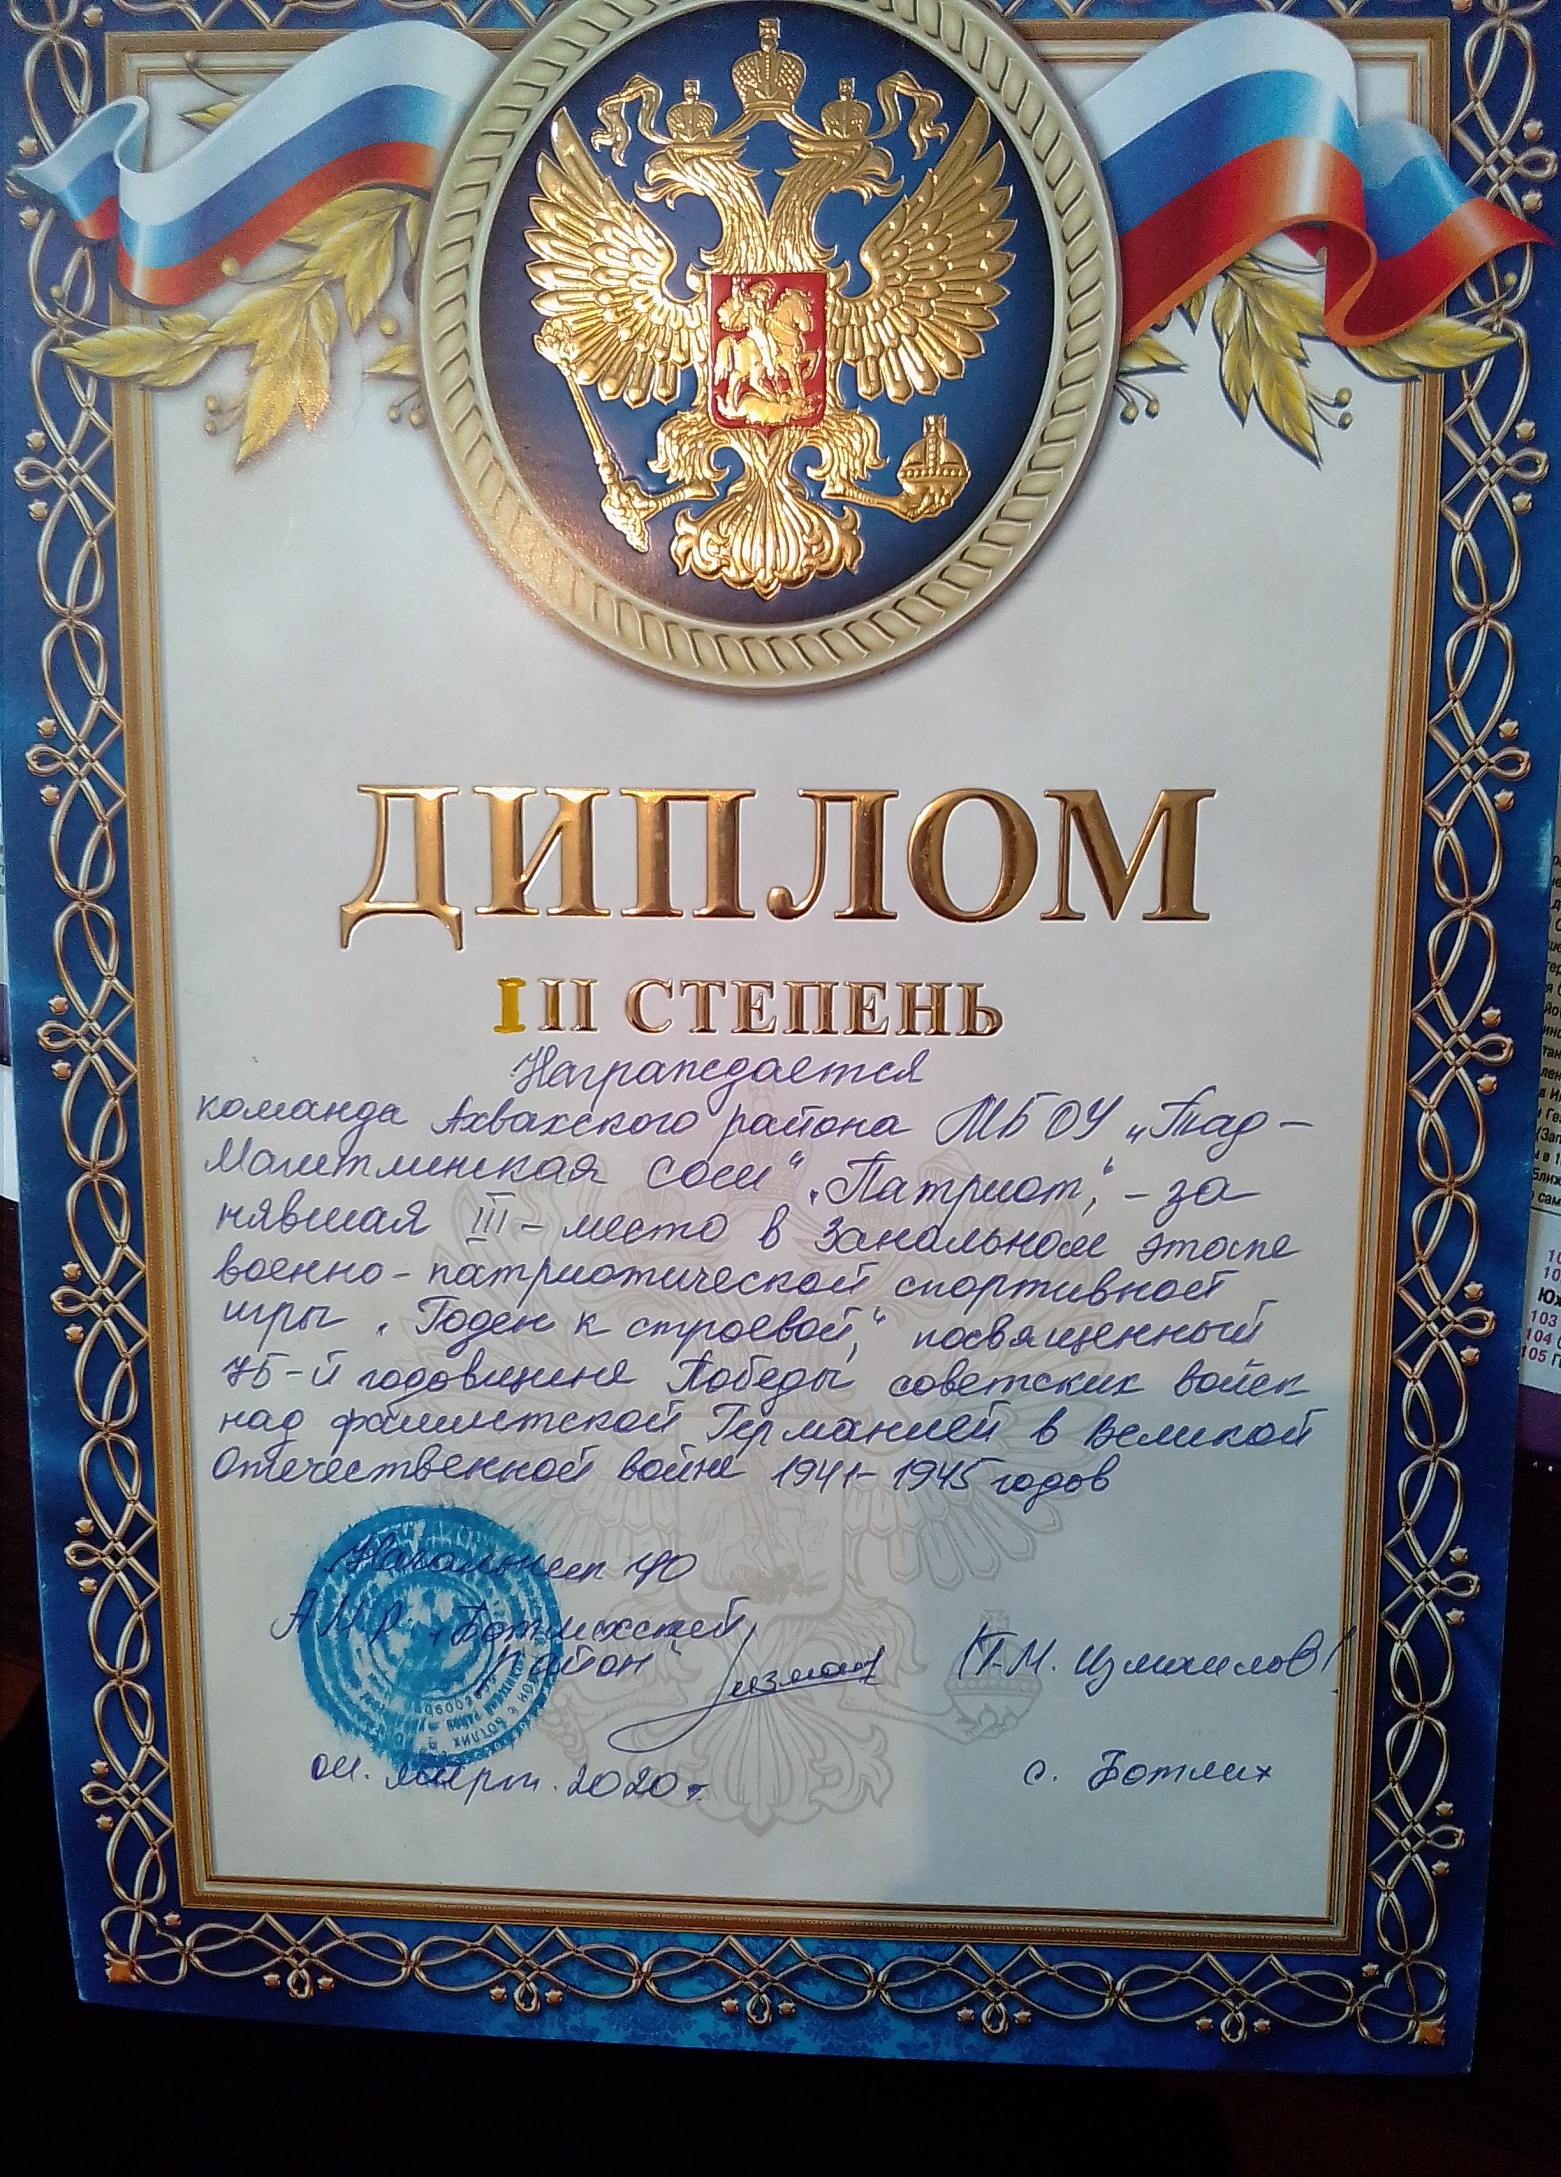 ДИПЛОМ
III СТЕПЕНЬ
Награждается
команда Ахвахского района МБОУ „Тад-
Магитлинская сош" „Патриот", - за
нявшая III - место в зональном этапе
военно-патриотической спортивной
игры „Годен к строевой", посвященный
75-й годовщине Победы советских войск
над фашистской Германией в Великой
Отечественной войне 1941-1945 годов
Начальник УО
АМР „Ботлихский
район"
/Т-М. Измаилов/
март. 2020 г.
с. Ботлих
103
104
105